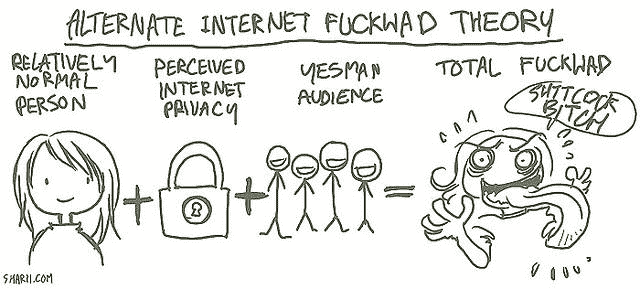 ALTERNATE INTERNET FUCKWAD THEORY
RELATIVELY
NORMAL
PERSON
PERCEIVED
INTERNET
PRIVACY
YESMAN
AUDIENCE
TOTAL FUCKWAD
SHITCOCK
BITCH
SHARII.COM